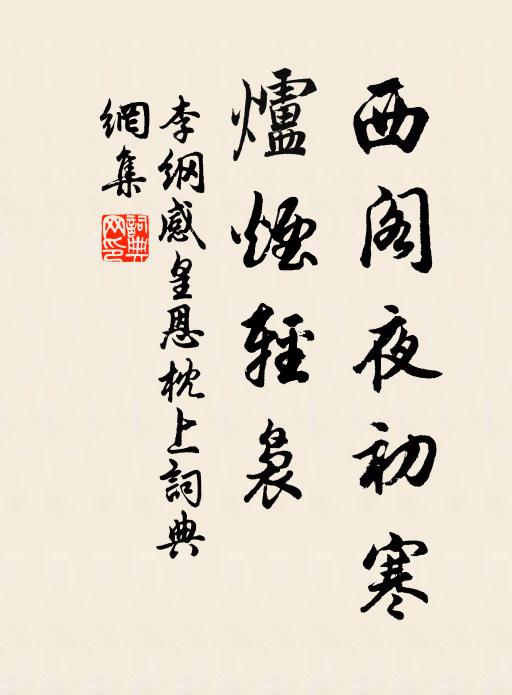 西閣夜初寒
爐煙輕裊
李綱感皇恩枕上詞典
網集
詞典網印